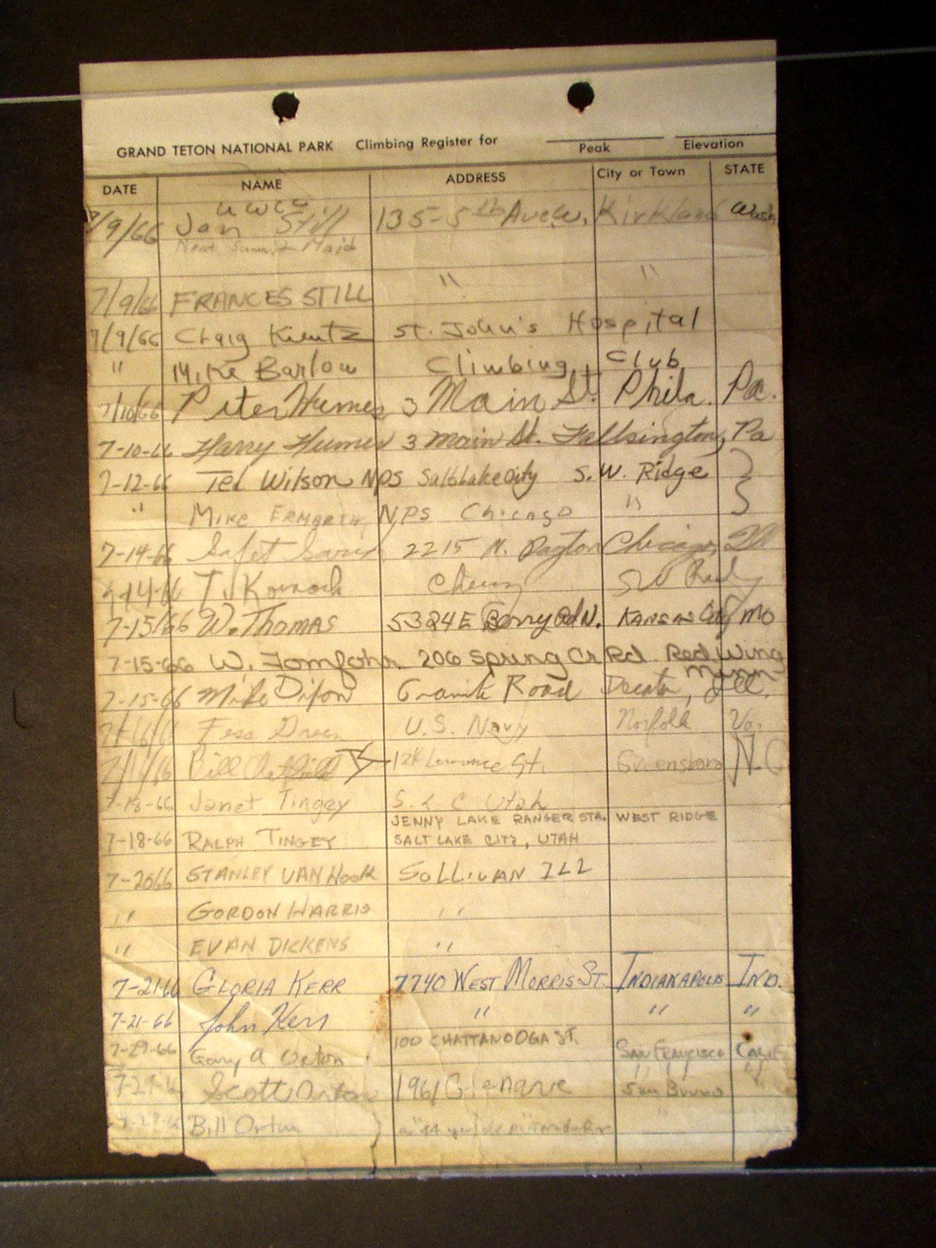 GRAND TETON NATIONAL PARK Climbing Register for Peak Elevation
DATE NAME ADDRESS City or Town STATE
UWCC
7/9/66 Jan Still 135-5th Ave W. Kirkland Wash
Next Summit Maid
7/9/66 FRANCES STILL " "
7/9/66 Craig Kuntz St. John's Hospital
" Mike Barlow Climbing Club
7/10/66 Peter Humes 3 Main St. Phila. Pa.
7-10-66 Harry Humes 3 Main St. Fallsington, Pa
7-12-66 Ted Wilson NPS Salt Lake City S.W. Ridge
" MIKE NPS Chicago "
7-14-66 2215 N. Dayton Chicago Ill
7-14-66 T.
7-15/66 W. THOMAS 5324 E Berry Rd N. KANSAS City MO
7-15-66 W. Tomfohr 206 Spring Cr Rd. Red Wing Minn
7-15-66 Mike Dixon Granite Road Ill.
U.S. Navy Norfolk Va.
Bill St. Greensboro N.C
7-18-66 Janet Tingey S. L. C Utah
JENNY LAKE RANGER STA. WEST RIDGE
7-18-66 RALPH TINGEY SALT LAKE CITY, UTAH
7-2066 STANLEY VAN HOOK SOLLIVAN ILL
" GORDON HARRIS "
" EVAN DICKENS "
7-21-66 GLORIA KERR 7740 WEST MORRIS ST. INDIANAPOLIS IND.
7-21-66 John Kerr " " "
7-29-66 Gary A Orton 100 CHATTANOOGA ST. SAN FRANCISCO CALIF
7-29-66 Scott Orton 1961 Glenave San Bruno "
Bill Orton